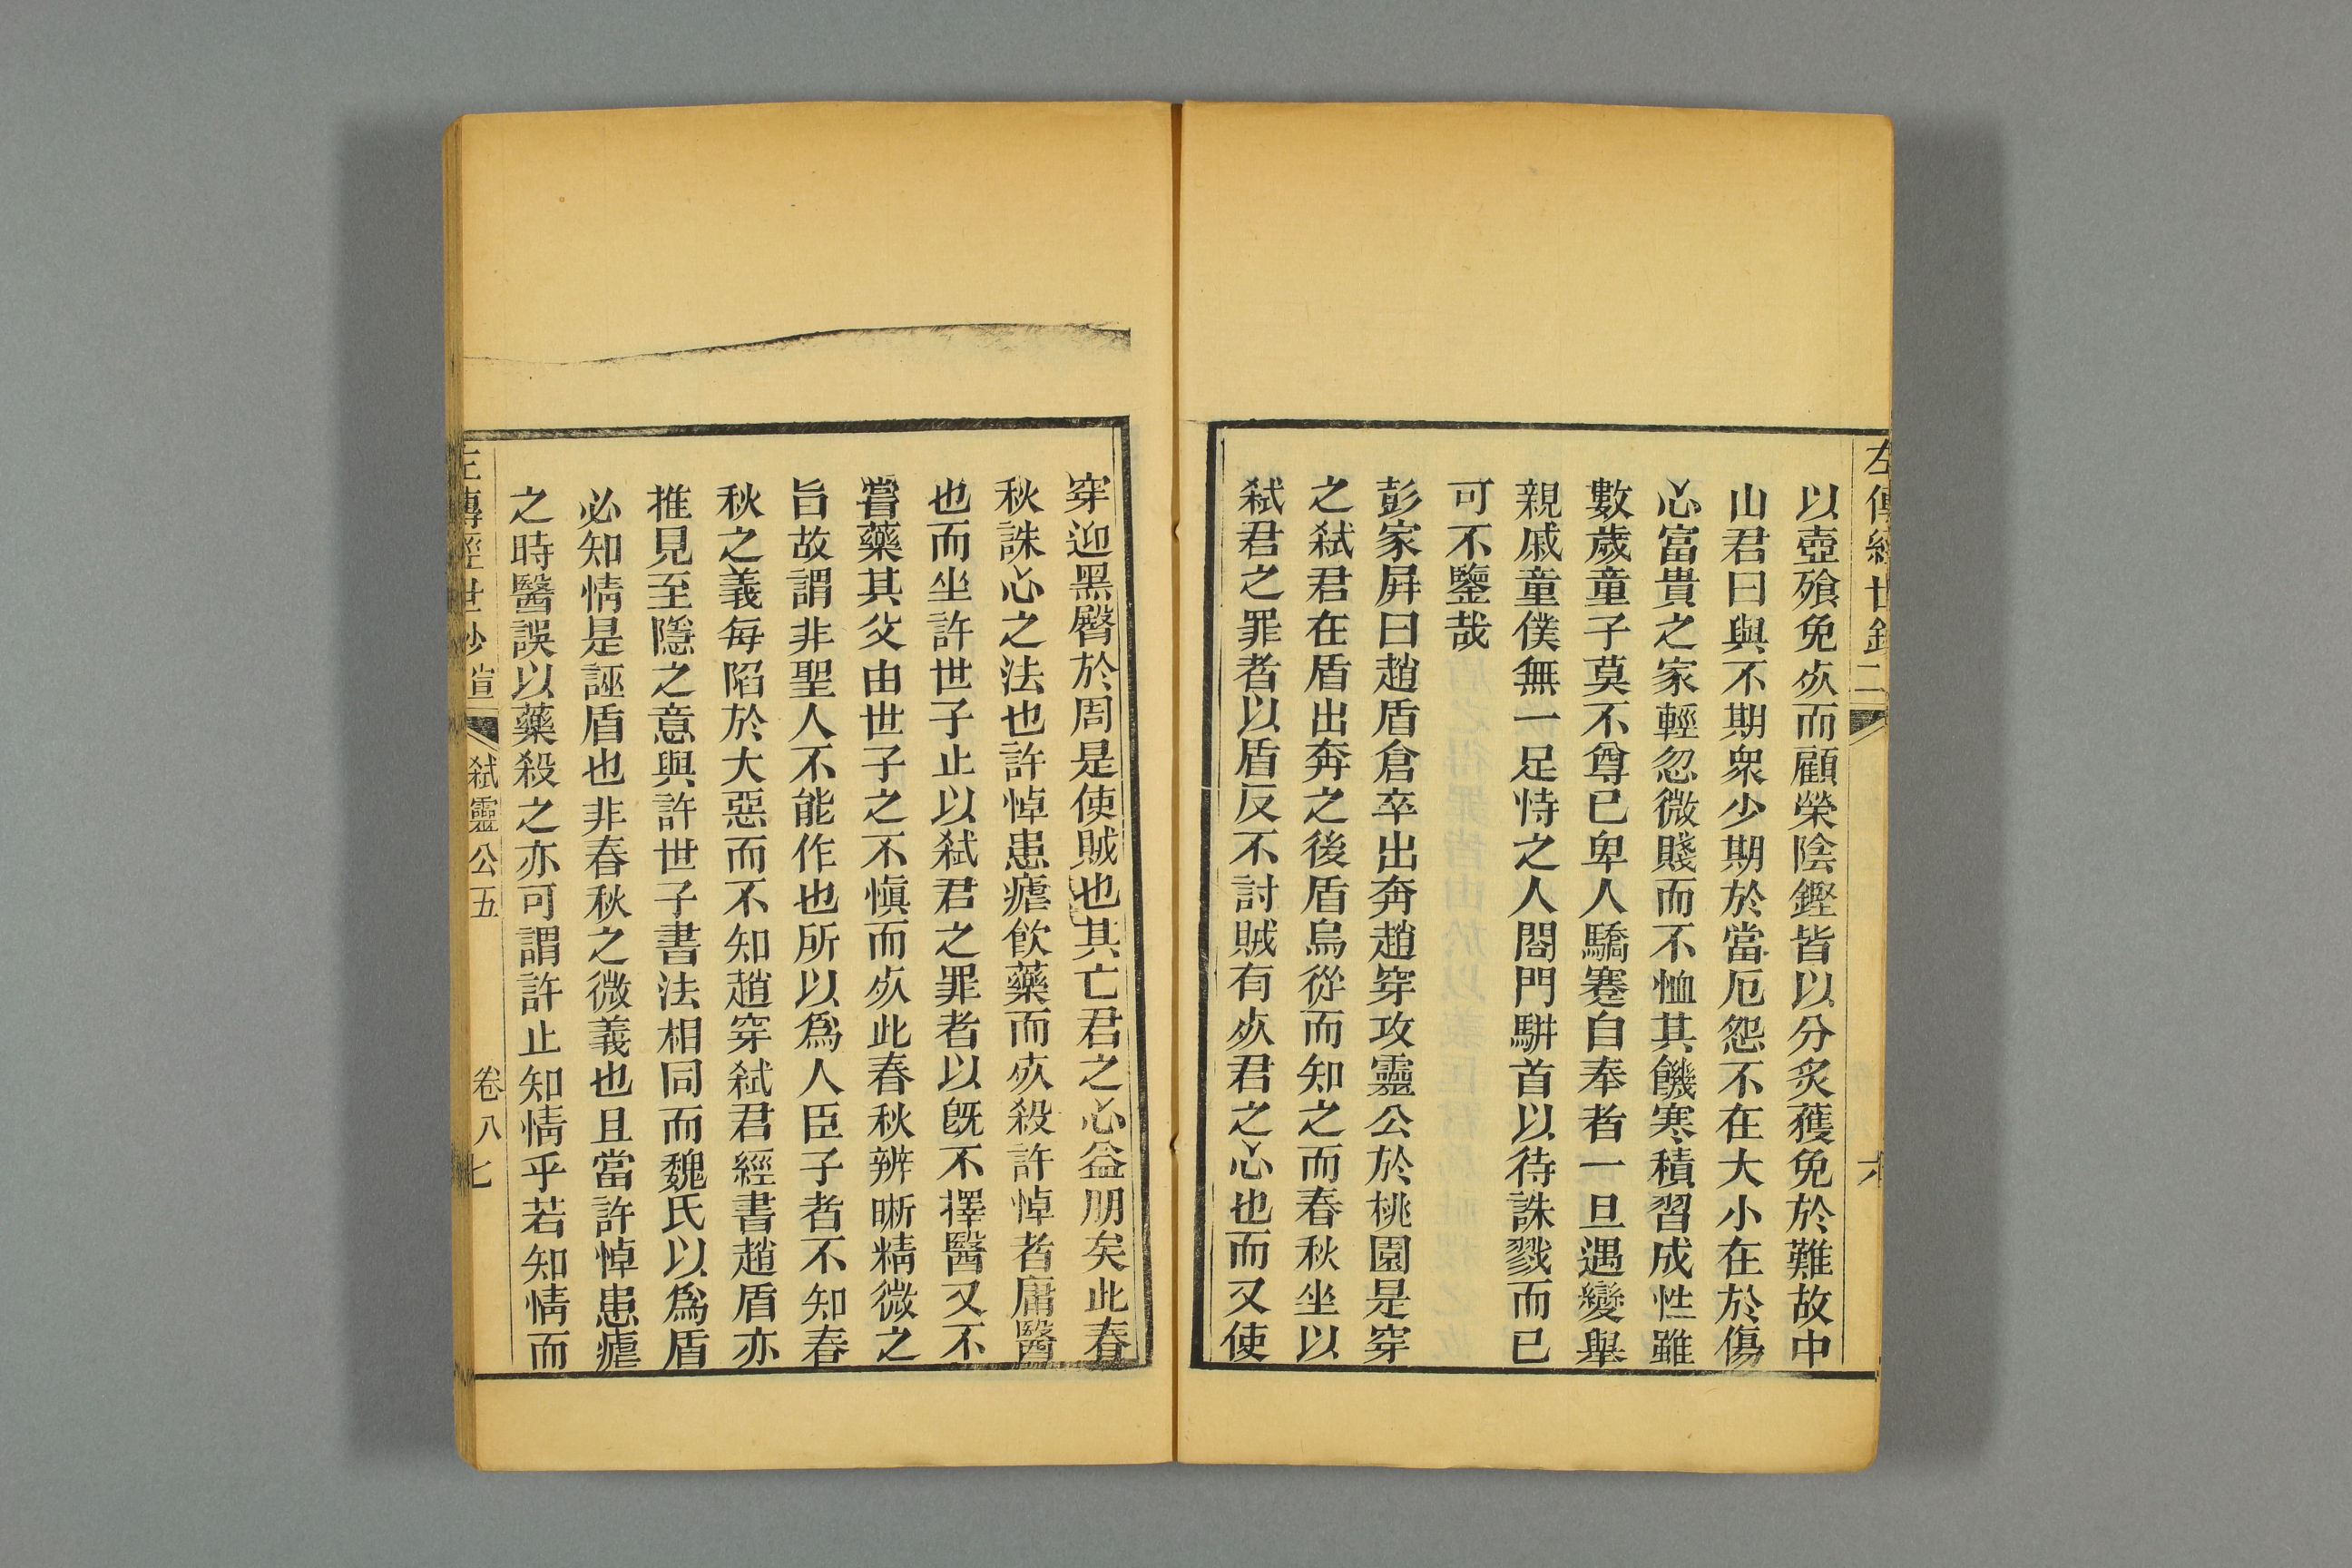 以壺飱免𣦸而顧榮陰鏗皆以分炙獲免於難故中
山君曰與不期衆少期於當厄怨不在大小在於傷
心富貴之家輕忽微賤而不恤其饑寒積習成性雖
數歲童子莫不尊已卑人驕蹇自奉者一旦遇變舉
親戚童僕無一足恃之人閤門駢首以待誅戮而已
可不鑒哉
彭家屛曰趙盾倉卒出奔趙穿攻靈公於桃園是穿
之弑君在盾出奔之後盾烏從而知之而春秋坐以
弑君之罪者以盾反不討賊有𣦸君之心也而又使
穿迎黑臀於周是使賊也其亡君之心益明矣此春
秋誅心之法也許悼患瘧飮藥而𣦸殺許悼者庸醫
也而坐許世子止以弑君之罪者以旣不擇醫又不
嘗藥其父由世子之不愼而𣦸此春秋辨晰精微之
旨故謂非聖人不能作也所以爲人臣子者不知春
秋之義每陷於大惡而不知趙穿弑君經書趙盾亦
推見至隱之意與許世子書法相同而魏氏以爲盾
必知情是誣盾也非春秋之微義也且當許悼患瘧
之時醫誤以藥殺之亦可謂許止知情乎若知情而
左傳經世鈔 宣二 弑靈公五 卷八 七